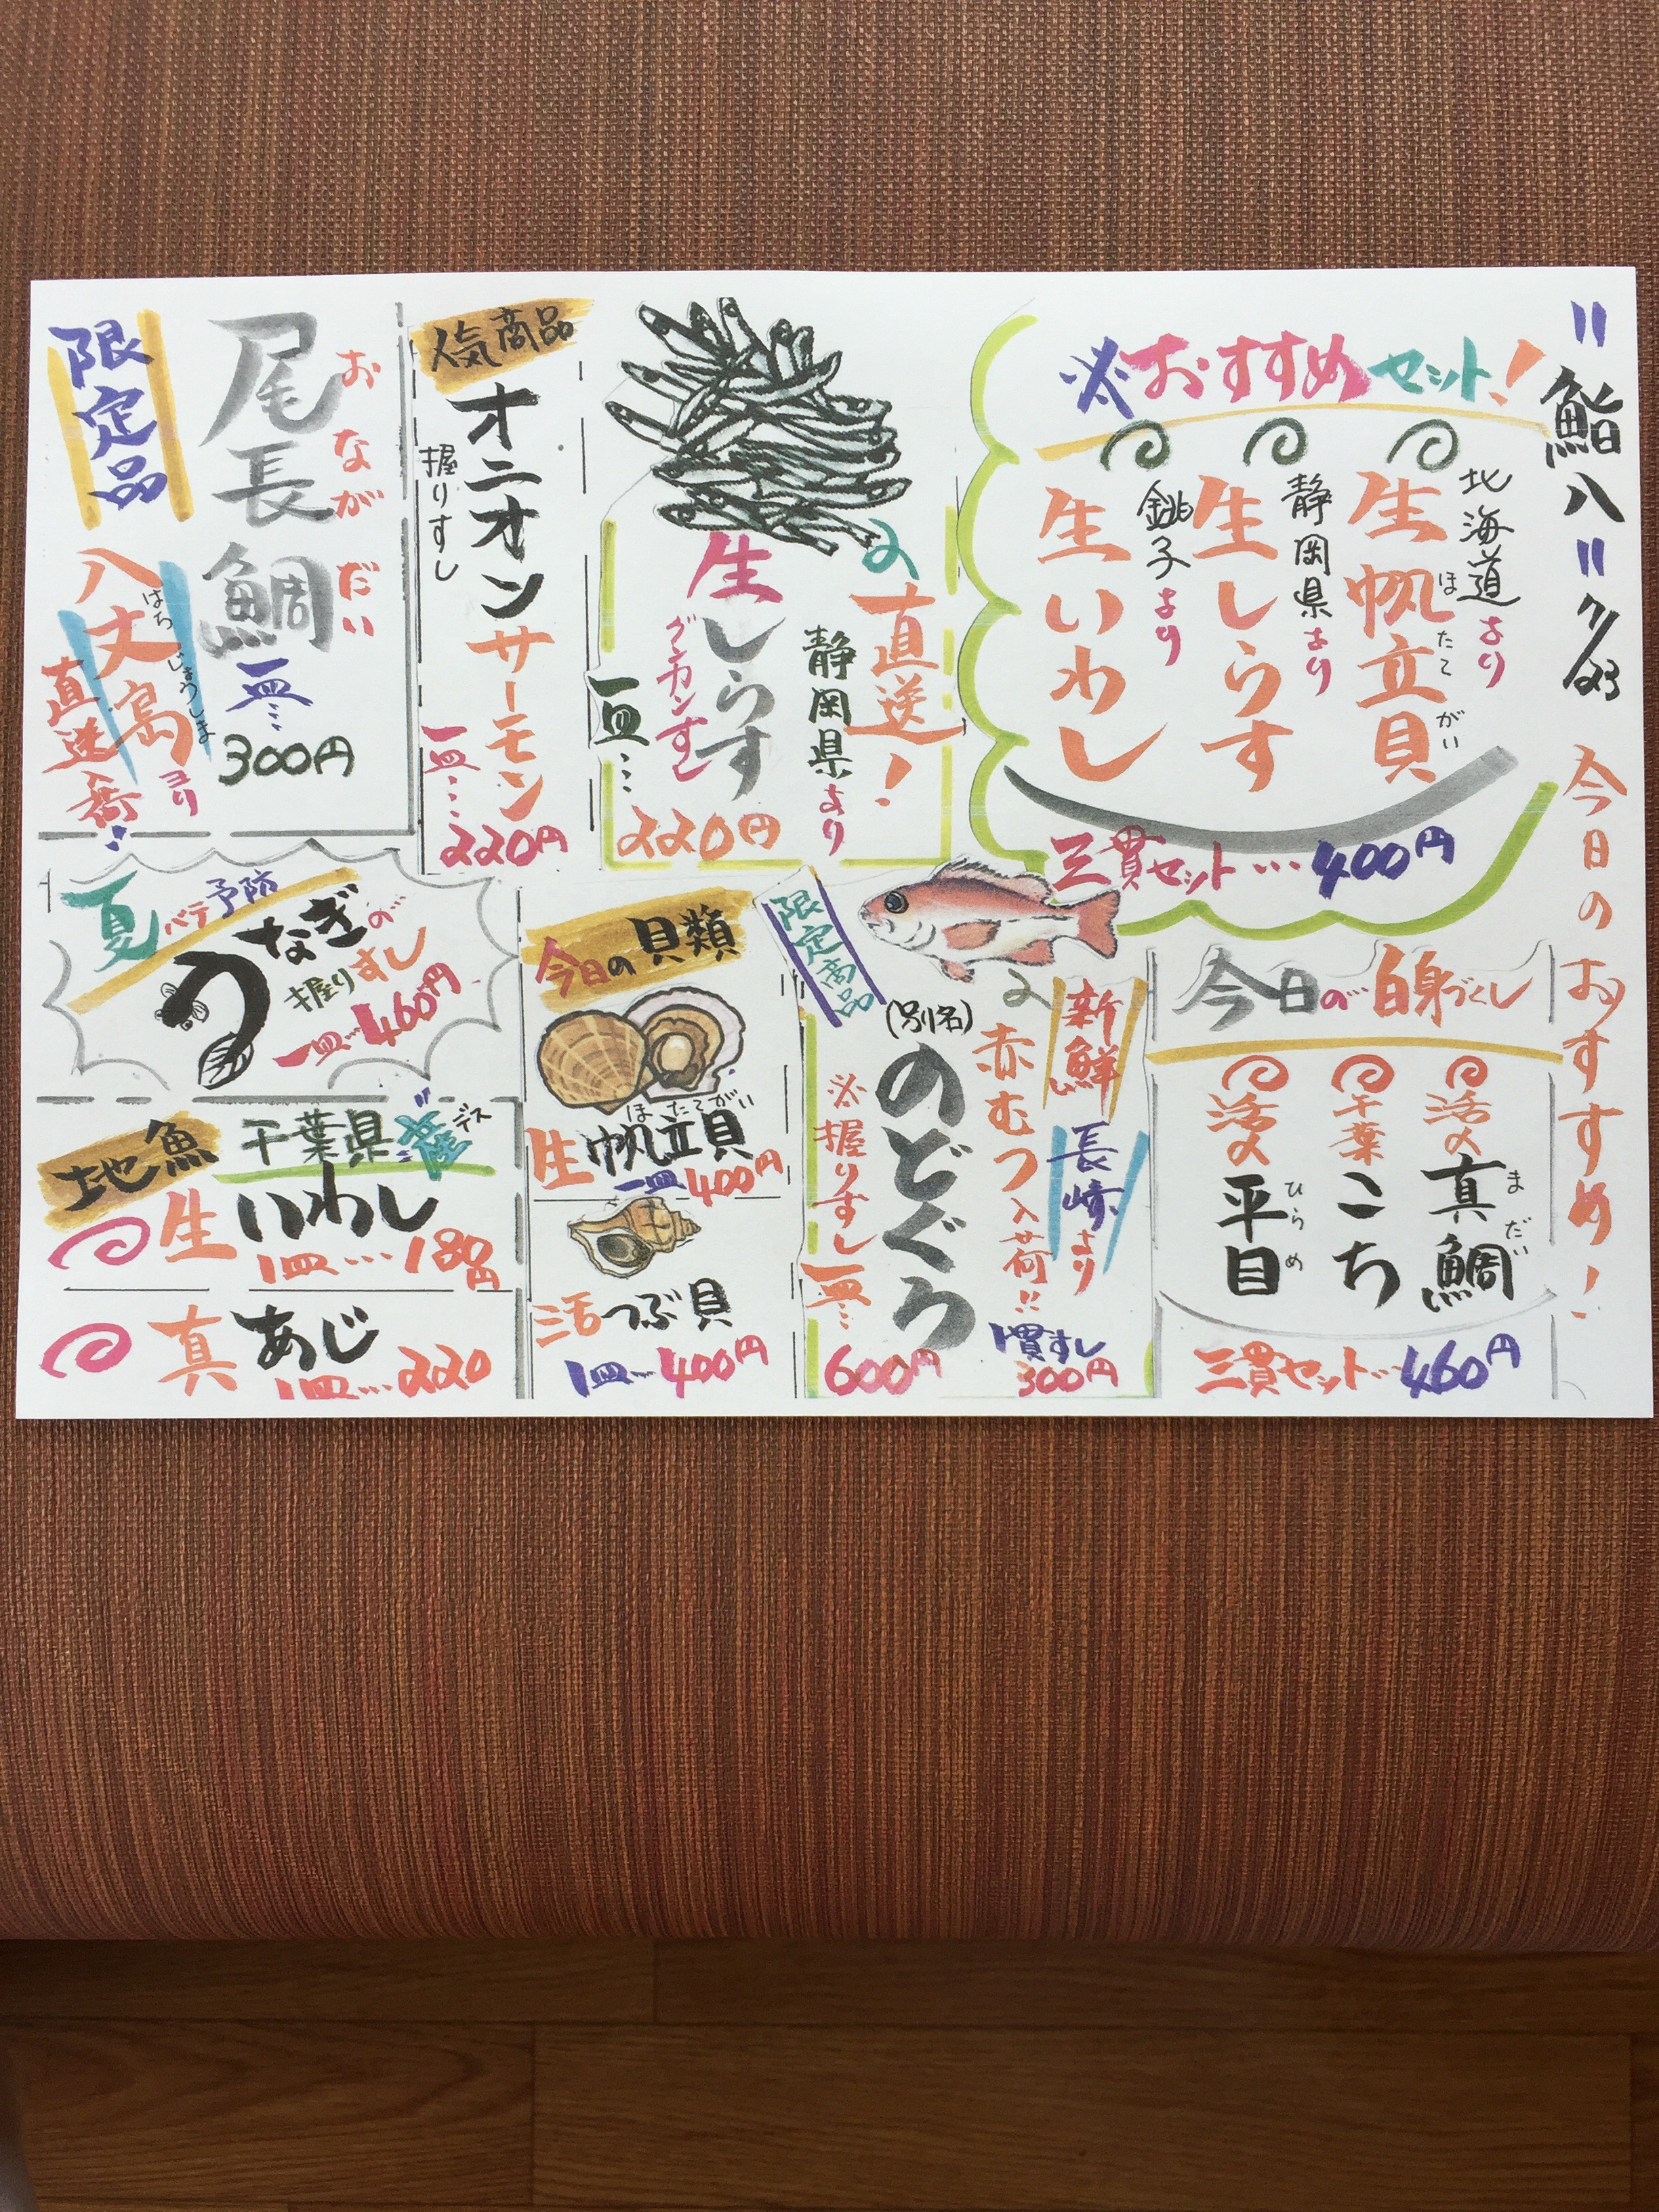 "鮨八" 7/23
今日のおすすめ!
※おすすめセット!
北海道より
生帆立貝
ほたてがい
静岡県より
生しらす
銚子より
生いわし
三貫セット…400円
直送!
静岡県より
生しらす
グンカンすし
一皿…
220円
人気商品
オニオンサーモン
握りすし
一皿…
220円
限定品
尾長鯛
おながだい
一皿…
300円
八丈島ヨリ
はちじょうしま
直送入荷!
今日の白身づくし
活〆
真鯛
まだい
千葉
こち
活〆
平目
ひらめ
三貫セット…460円
限定商品
新鮮
長崎より
赤むつ入荷!!
(別名)
のどぐろ
※握りすし
一皿…
600円
1貫すし
300円
今日の貝類
生帆立貝
ほたてがい
一皿400円
活つぶ貝
1皿…400円
夏バテ予防
うなぎの
握りすし
一皿…460円
地魚
千葉県産デス
生いわし
1皿…180円
真あじ
1皿…220